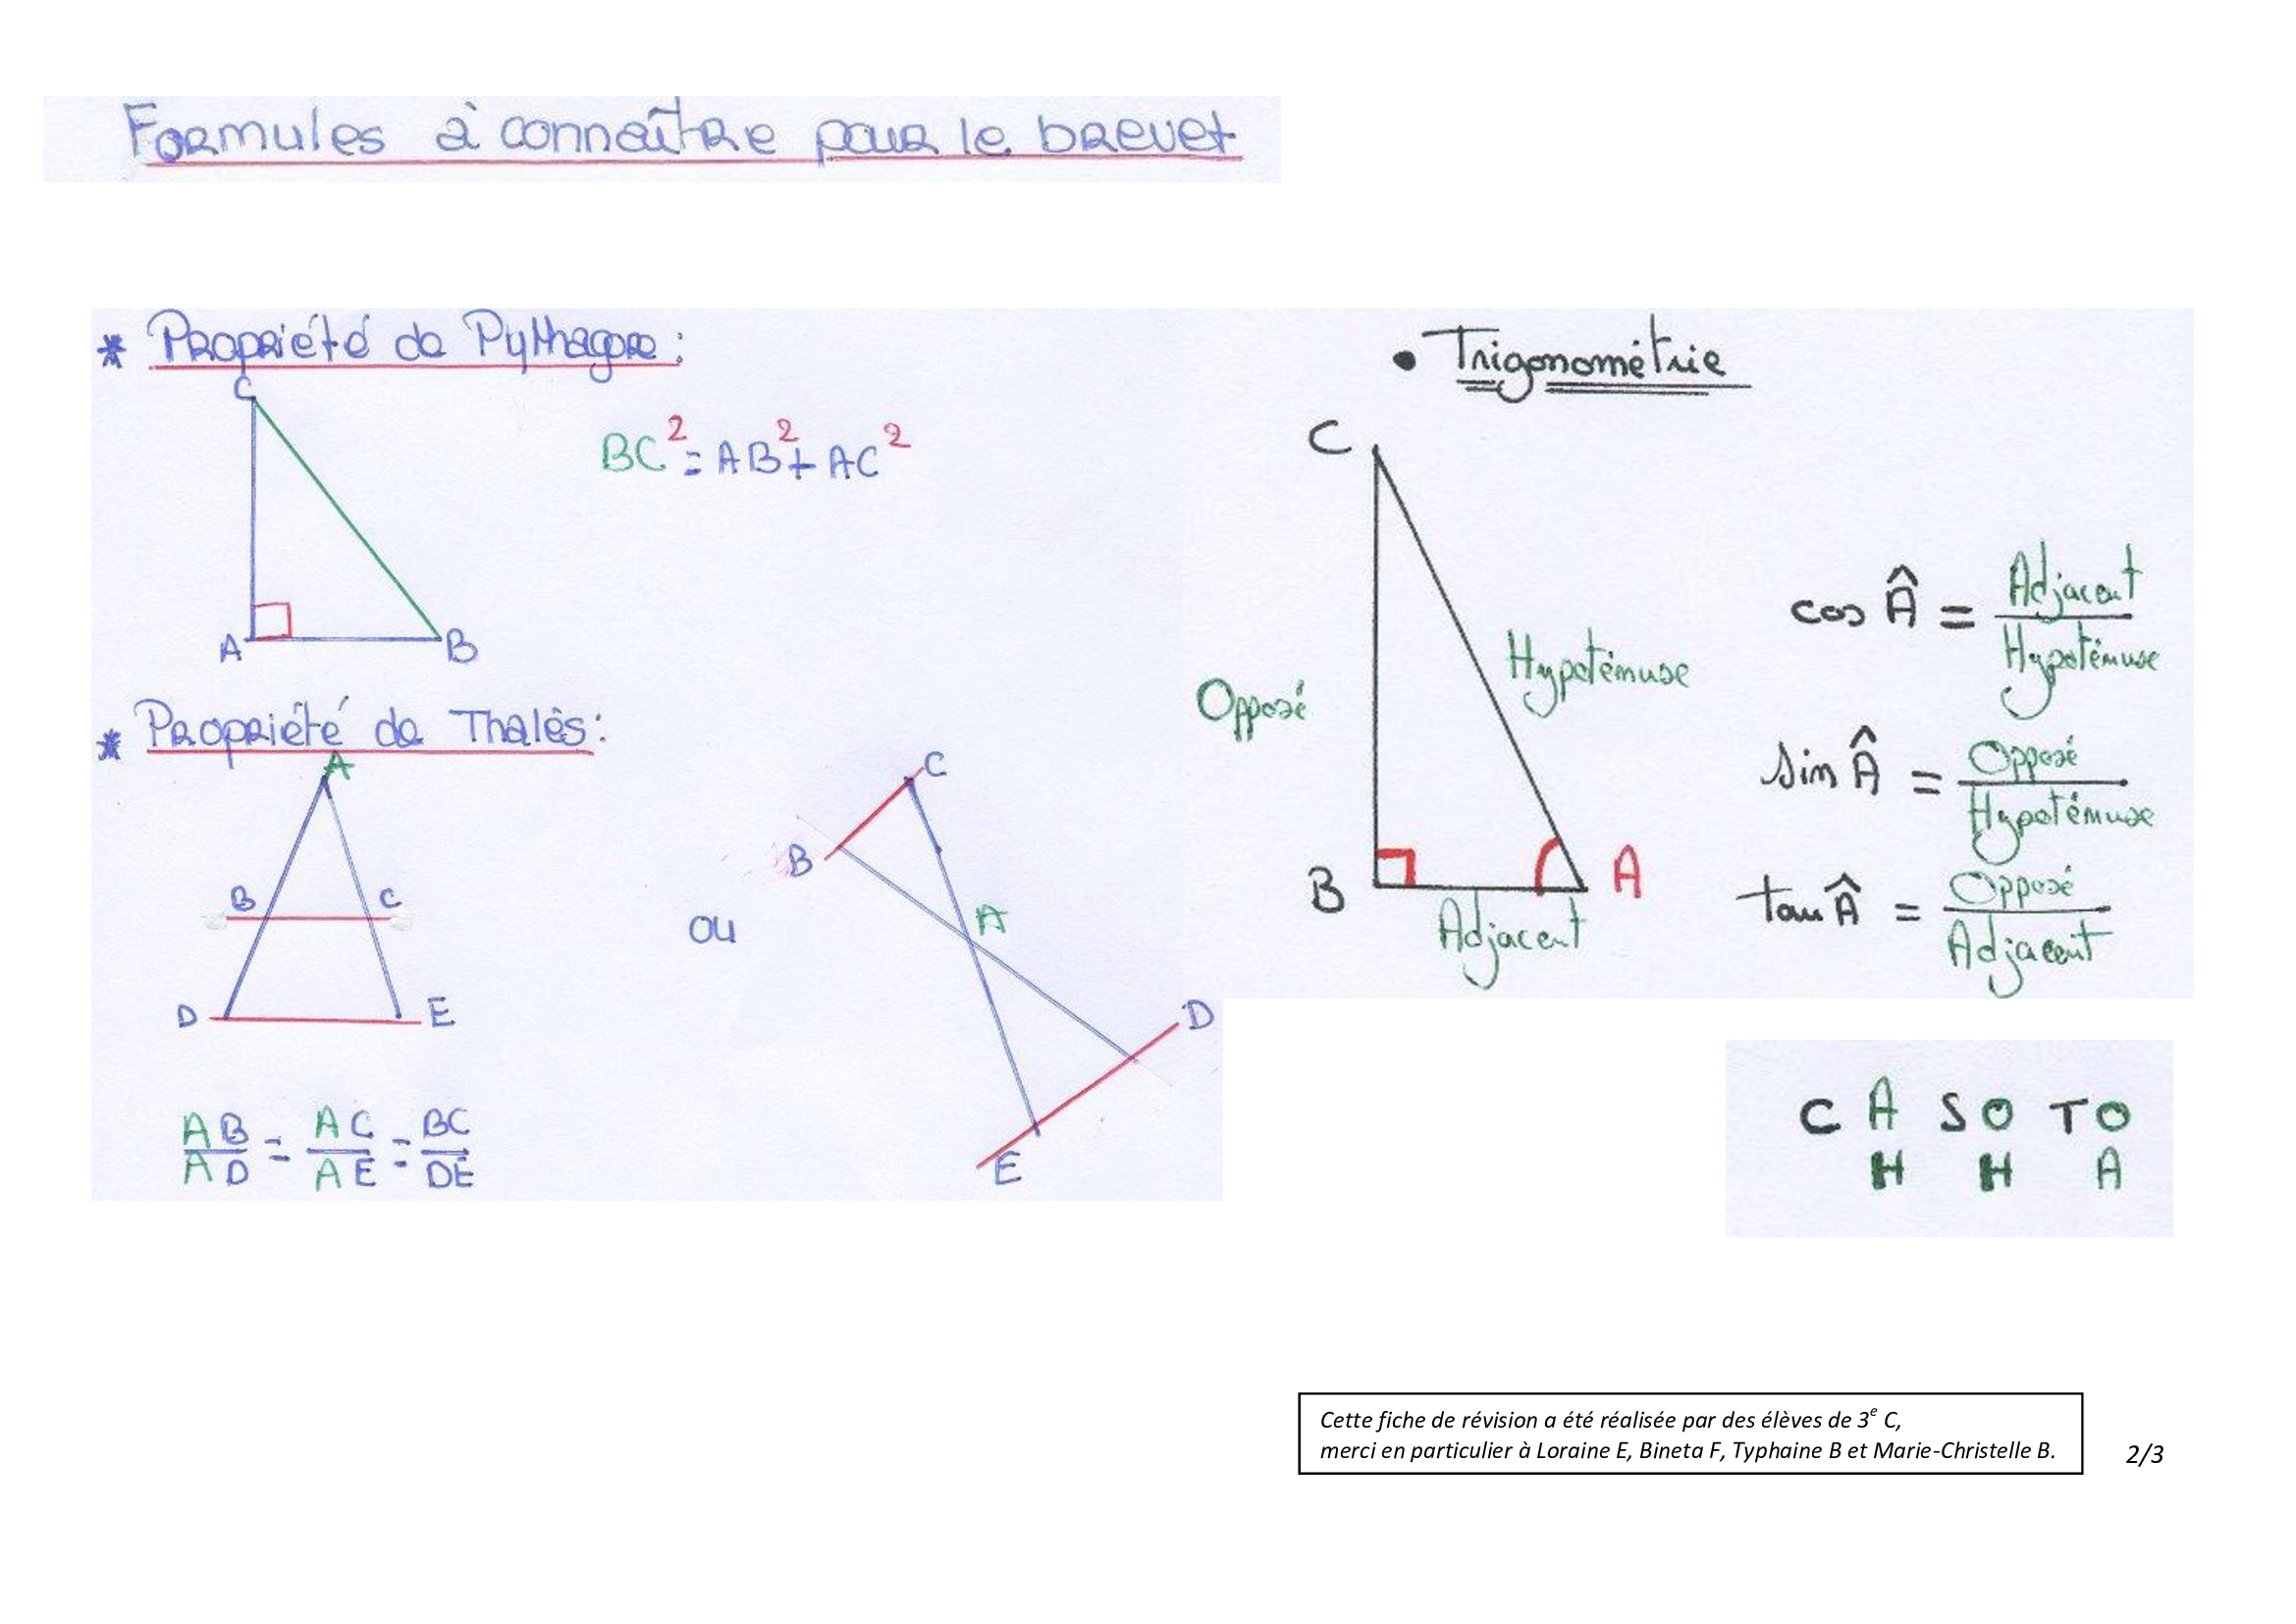 Formules à connaître pour le brevet
* Propriété de Pythagore :
C
BC² = AB² + AC²
A B
* Propriété de Thalès :
A
B C
D E
AB/AD = AC/AE = BC/DE
ou
C
B
A
D
E
• Trigonométrie
C
Opposé
Hypoténuse
B
A
Adjacent
cos Â = Adjacent/Hypoténuse
sin Â = Opposé/Hypoténuse
tan Â = Opposé/Adjacent
C A S O T O
H H A
Cette fiche de révision a été réalisée par des élèves de 3e C,
merci en particulier à Loraine E, Bineta F, Typhaine B et Marie-Christelle B.
2/3